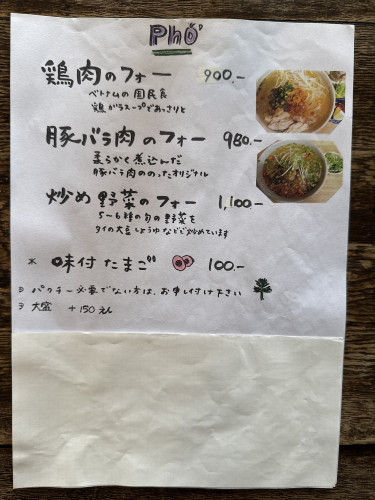 Phở
鶏肉のフォー 900.-
ベトナムの国民食
鶏がらスープであっさりと
豚バラ肉のフォー 980.-
柔らかく煮込んだ
豚バラ肉ののったオリジナル
炒め野菜のフォー 1,100.-
5〜6種の旬の野菜を
タイの大豆しょうゆなどで炒めています
* 味付たまご 100.-
パクチー必要でない方は、お申し付け下さい
大盛 +150えん